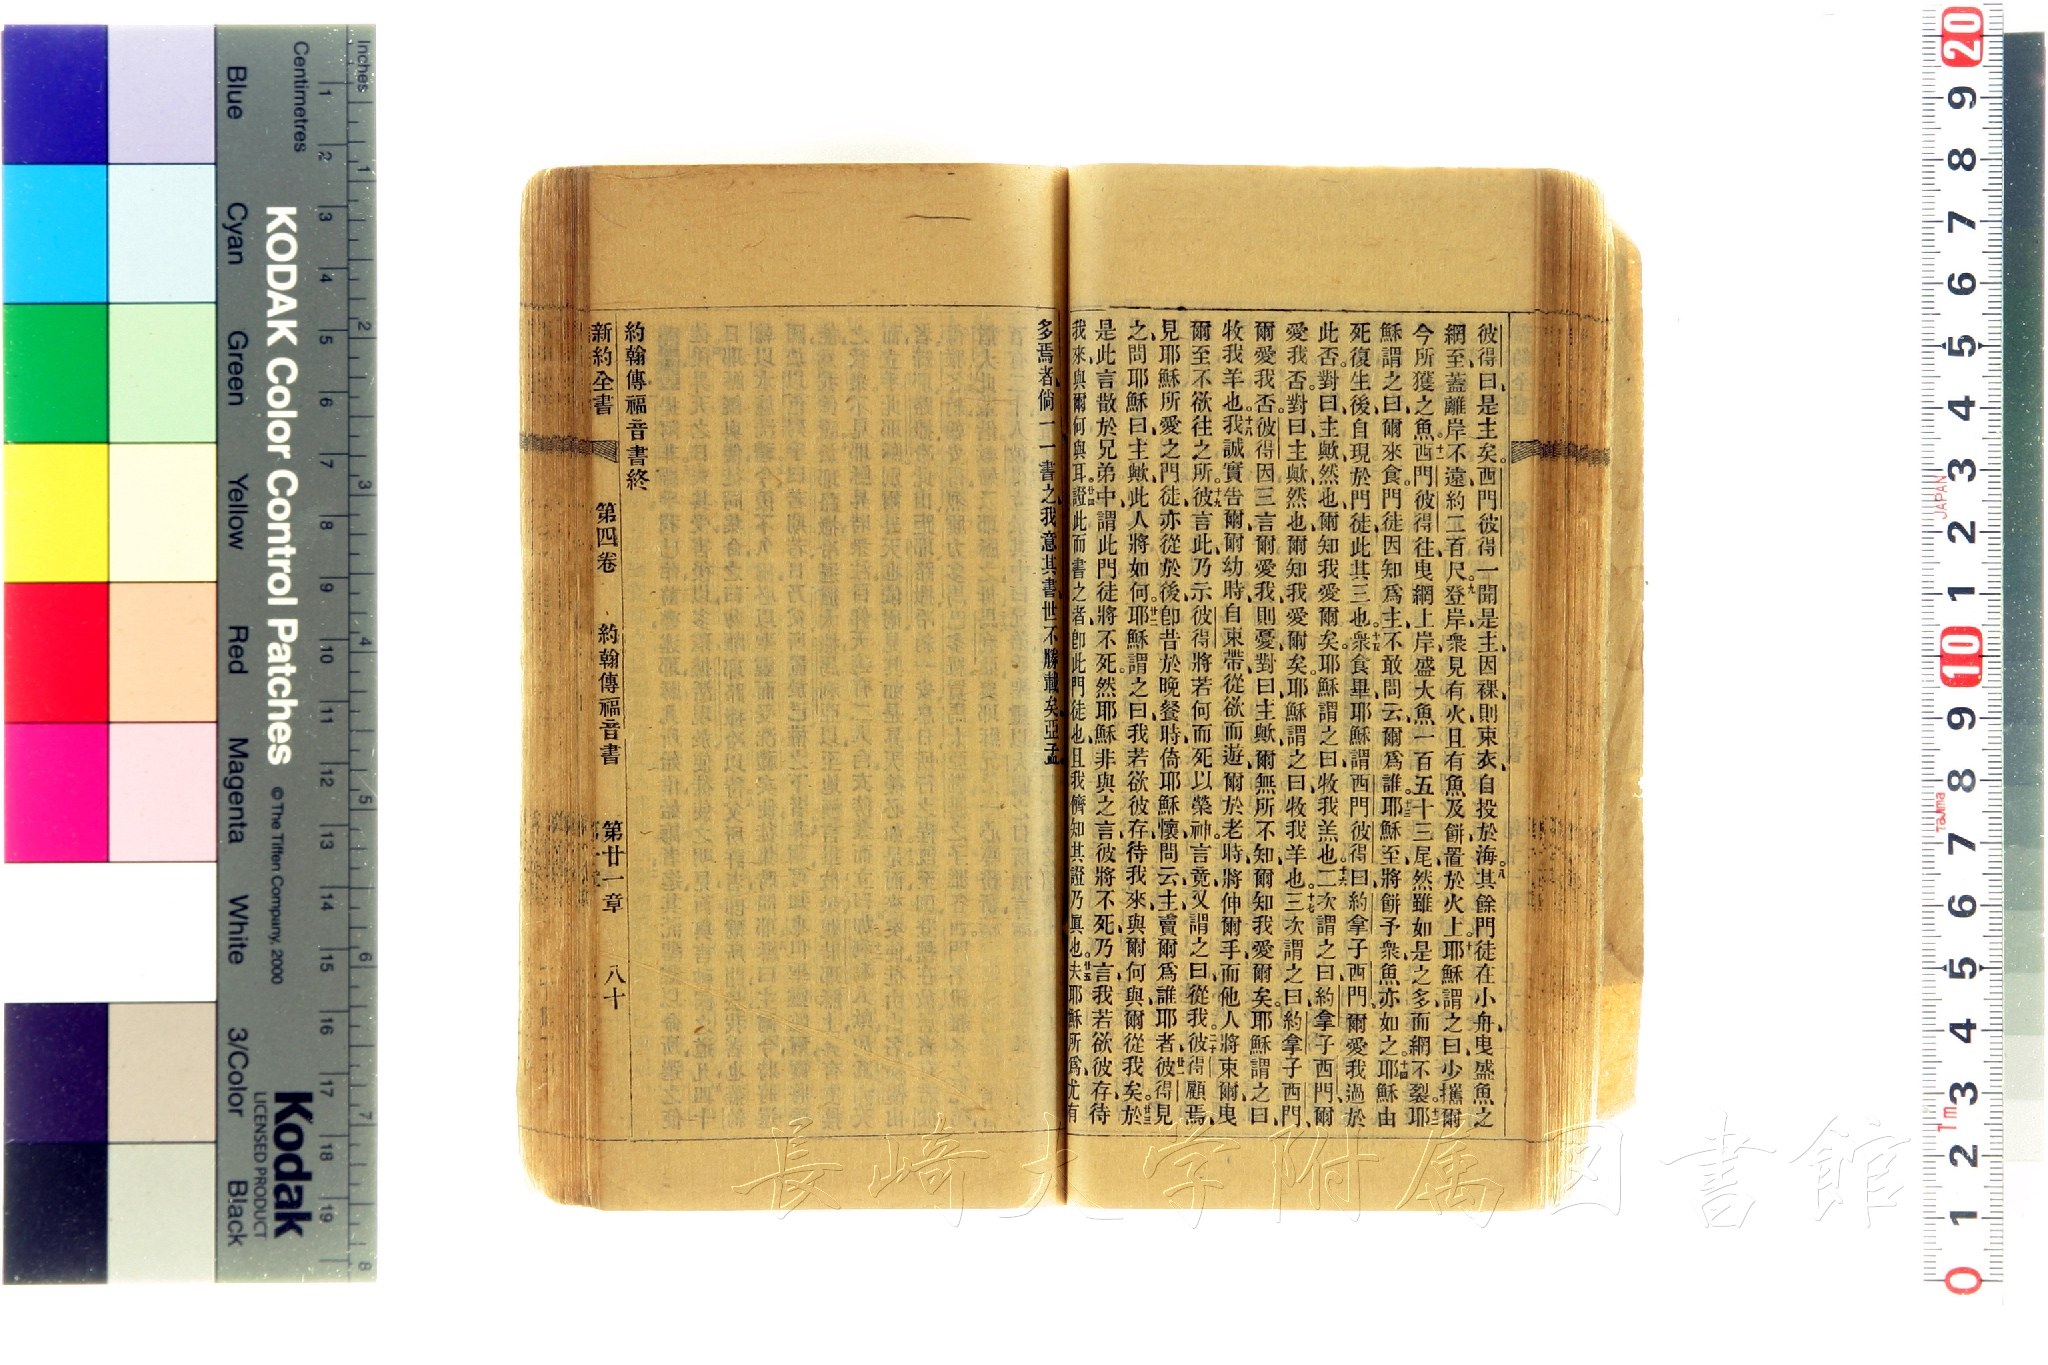 彼得曰、是主矣、西門彼得一聞是主、因裸、則束衣自投於海。八其餘門徒在小舟、曳盛魚之
網至、蓋離岸不遠、約二百尺。九登岸、衆見有火、且有魚及餅置於火上。十耶穌謂之曰、少攜爾
今所獲之魚。十一西門彼得往曳網上岸、盛大魚一百五十三尾、然雖如是之多、而網不裂。十二耶
穌謂之曰、爾來食、門徒因知爲主、不敢問云、爾爲誰。十三耶穌至、將餅予衆、魚亦如之。十四耶穌由
死復生後、自現於門徒、此其三也。十五衆食畢、耶穌謂西門彼得曰、約拿子西門、爾愛我過於
此否。對曰、主歟、然也、爾知我愛爾矣、耶穌謂之曰、牧我羔也。十六二次謂之曰、約拿子西門、爾
愛我否、對曰、主歟、然也、爾知我愛爾矣、耶穌謂之曰、牧我羊也。十七三次謂之曰、約拿子西門、
爾愛我否。彼得因三言爾愛我、則憂、對曰、主歟、爾無所不知、爾知我愛爾矣。耶穌謂之曰、
牧我羊也。十八我誠實告爾、爾幼時、自束帶、從欲而遊、爾於老時、將伸爾手、而他人將束爾、曳
爾至不欲往之所。十九彼言此、乃示彼得將若何而死、以榮神。言竟、又謂之曰、從我。二十彼得顧焉、
見耶穌所愛之門徒亦從於後、卽昔於晚餐時、倚耶穌懷、問云、主、賣爾爲誰耶者。廿一彼得見
之、問耶穌曰、主歟、此人將如何。廿二耶穌謂之曰、我若欲彼存待我來、與爾何與、爾從我矣。廿三於
是此言散於兄弟中、謂此門徒將不死、然耶穌非與之言彼將不死、乃言我若欲彼存待
我來、與爾何與耳。廿四證此而書之者、卽此門徒也、且我儕知其證乃眞也。廿五夫耶穌所爲、尤有
多焉者、倘一一書之、我意其書世不勝載矣、亞孟、
約翰傳福音書終
新約全書　第四卷　約翰傳福音書　第廿一章　八十
長崎大学附属図書館
Inches
Centimetres
KODAK Color Control Patches
© The Tiffen Company, 2000
Kodak
LICENSED PRODUCT
Blue
Cyan
Green
Yellow
Red
Magenta
White
3/Color
Black
JAPAN
Tajima